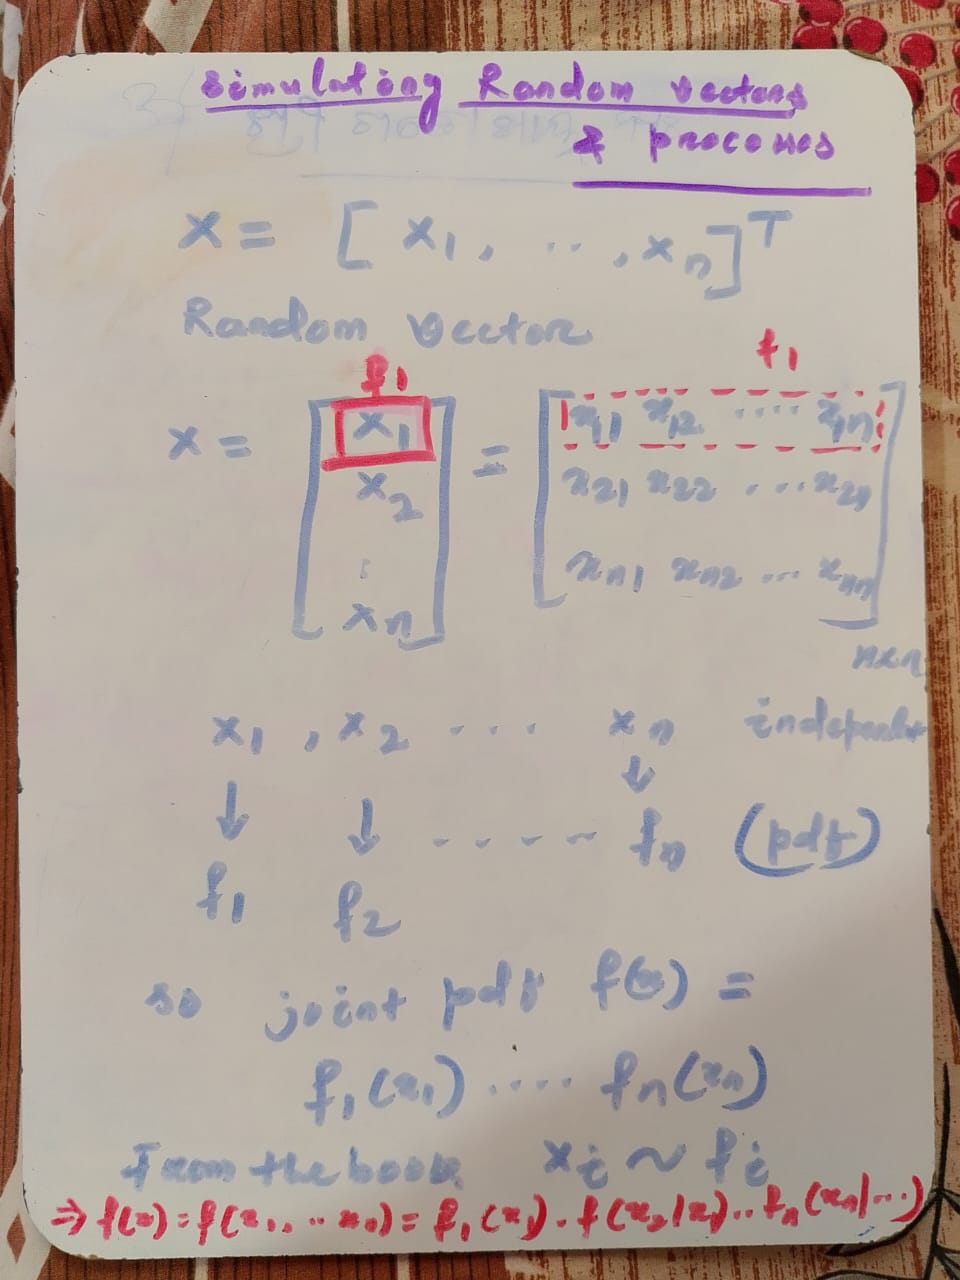 Simulating Random vectors
& processes
X = [ X₁, ..., Xₙ]ᵀ
Random vector
f₁ f₁
X = [ X₁ X₂ : Xₙ ] = [ x₁₁ x₁₂ .... x₁ₙ
x₂₁ x₂₂ .... x₂ₙ
xₙ₁ xₙ₂ ... xₙₙ ]
n×n
X₁ , X₂ .... Xₙ independent
↓ ↓ ..... ↓
f₁ f₂ fₙ (pdf)
so joint pdf f(x) =
f₁(x₁) .... fₙ(xₙ)
From the book Xᵢ ~ fᵢ
⇒ f(x) = f(x₁, ... xₙ) = f₁(x₁) . f(x₂|x₁) .. fₙ(xₙ|...)